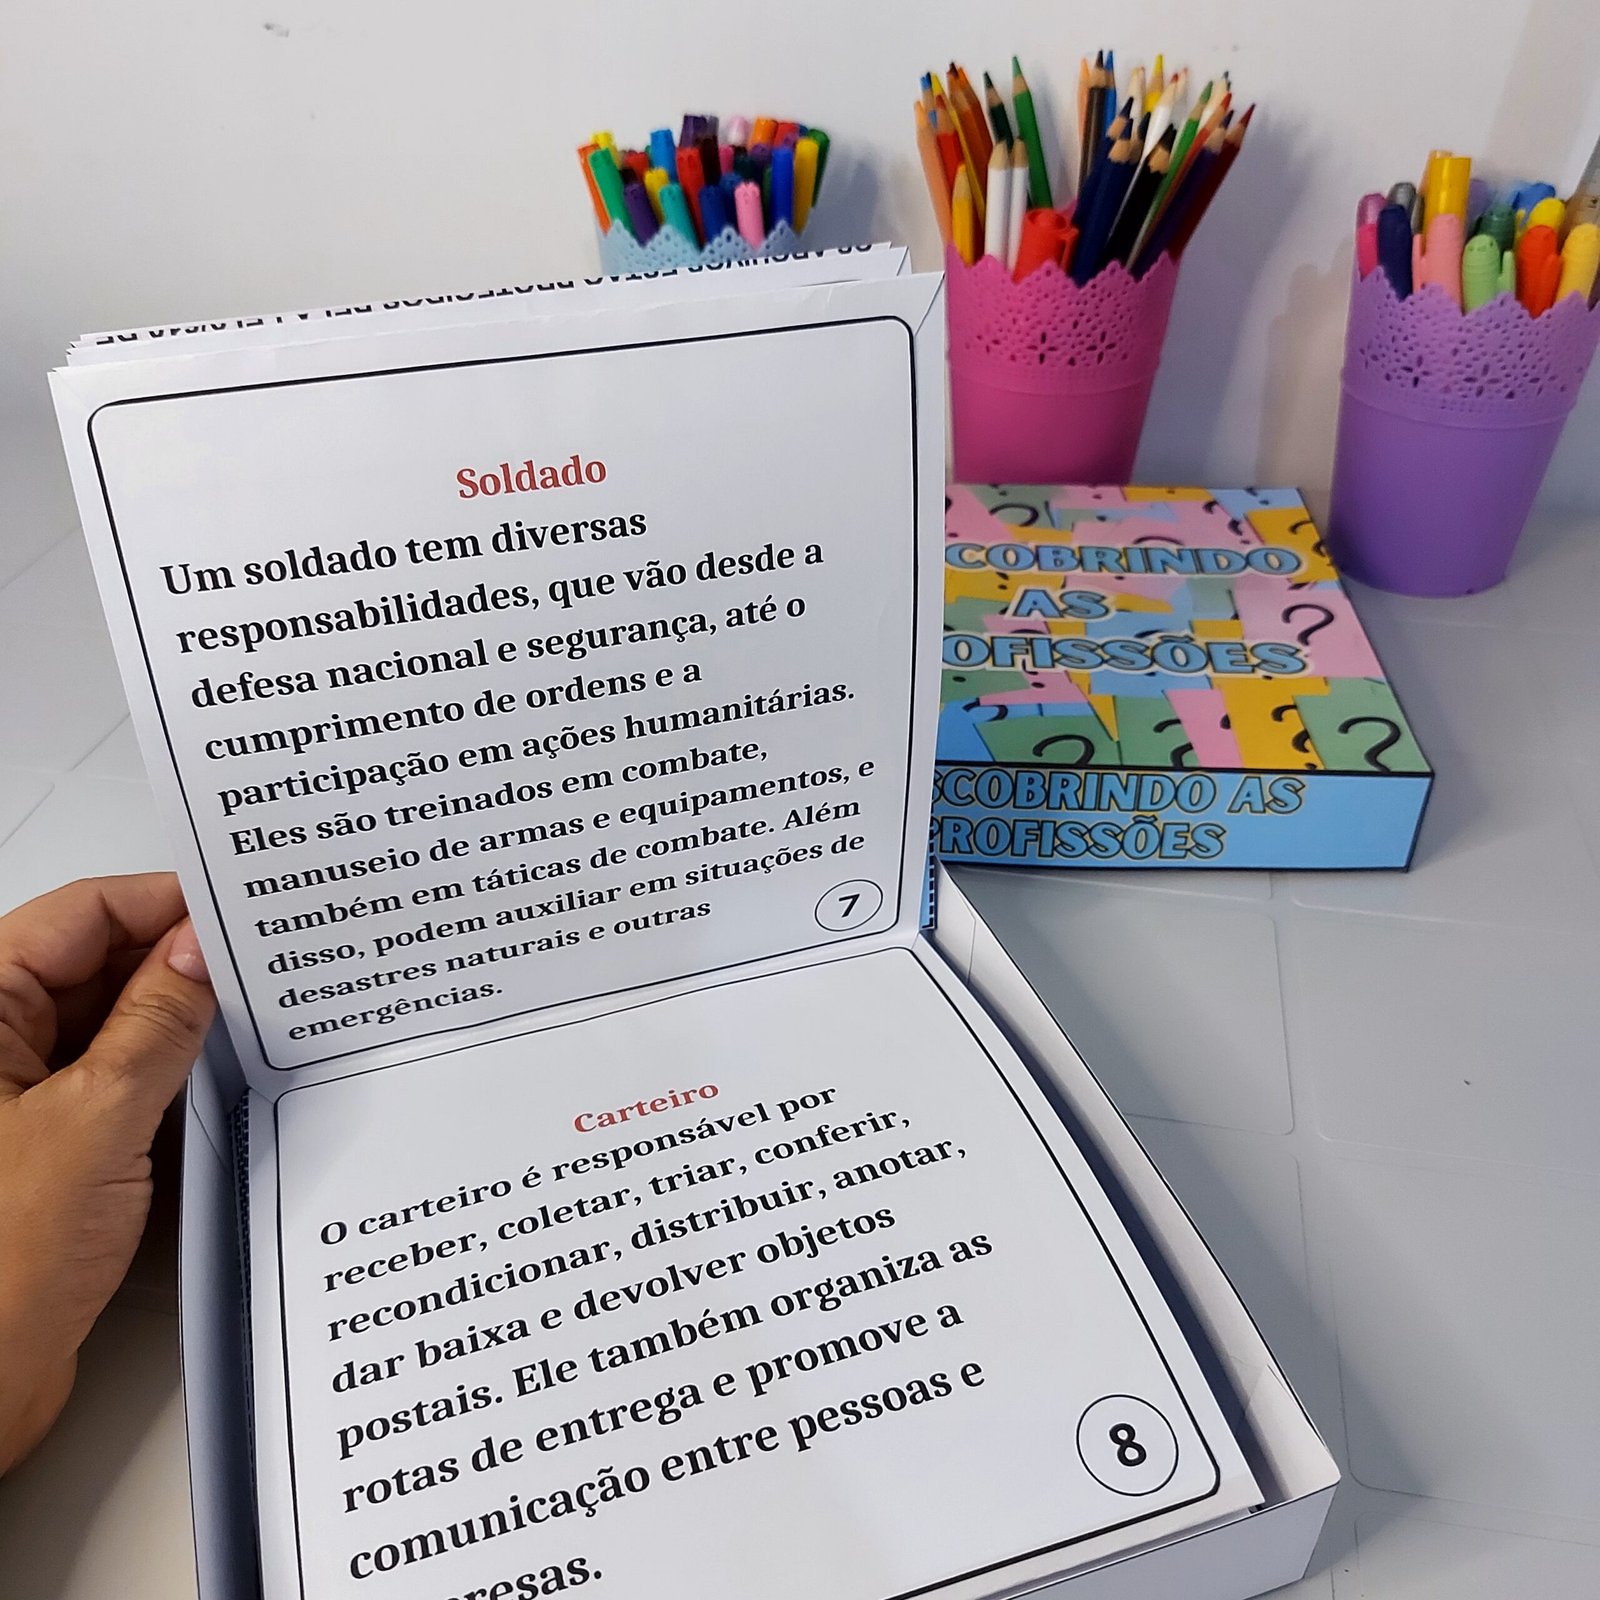 Soldado
Um soldado tem diversas
responsabilidades, que vão desde a
defesa nacional e segurança, até o
cumprimento de ordens e a
participação em ações humanitárias.
Eles são treinados em combate,
manuseio de armas e equipamentos, e
também em táticas de combate. Além
disso, podem auxiliar em situações de
desastres naturais e outras
emergências.
7
Carteiro
O carteiro é responsável por
receber, coletar, triar, conferir,
recondicionar, distribuir, anotar,
dar baixa e devolver objetos
postais. Ele também organiza as
rotas de entrega e promove a
comunicação entre pessoas e
resas.
8
COBRINDO
AS
OFISSÕES
SCOBRINDO AS
ROFISSÕES